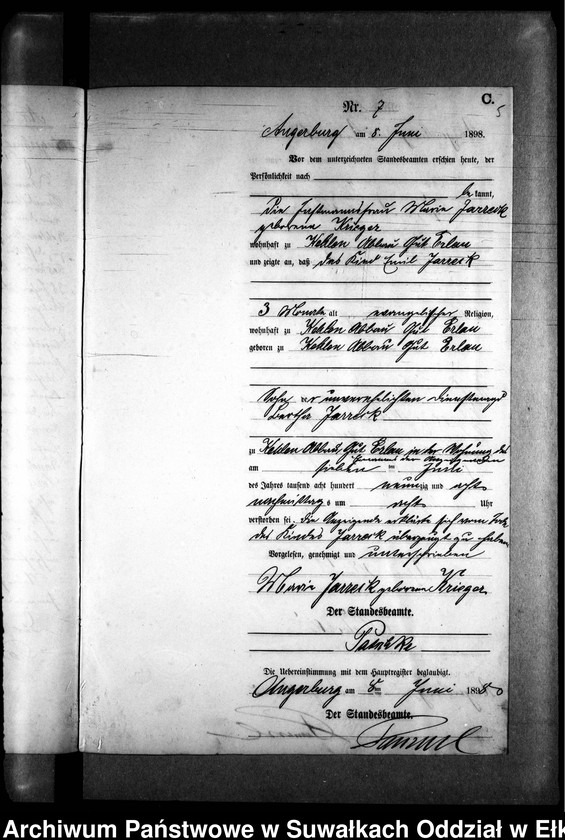 C.
5
Nr. 7
Angerburg am 8. Juni 1898.
Vor dem unterzeichneten Standesbeamten erschien heute, der
Persönlichkeit nach
bekannt,
die Instmannsfrau Marie Jarreck
geborene Krieger
wohnhaft zu Kehlen Abbau Gut Erlau
und zeigte an, daß das Kind Emil Jarreck
3 Monate alt evangelischer Religion,
wohnhaft zu Kehlen Abbau Gut Erlau
geboren zu Kehlen Abbau Gut Erlau
Sohn der unverehelichten Dienstmagd
Bertha Jarreck
zu Kehlen Abbau, Gut Erlau in der Wohnung des
Ehemannes der Anzeigenden
am sieben ten Juni
des Jahres tausend acht hundert neunzig und acht
nachmittags um acht Uhr
verstorben sei. Die Anzeigende erklärte sich vom Tode
des Kindes Jarreck überzeugt zu haben.
Vorgelesen, genehmigt und unterschrieben
Marie Jarreck geborene Krieger
Der Standesbeamte.
Die Uebereinstimmung mit dem Hauptregister beglaubigt.
Angerburg am 8ten Juni 1898
Der Standesbeamte.
Archiwum Państwowe w Suwałkach Oddział w Ełk